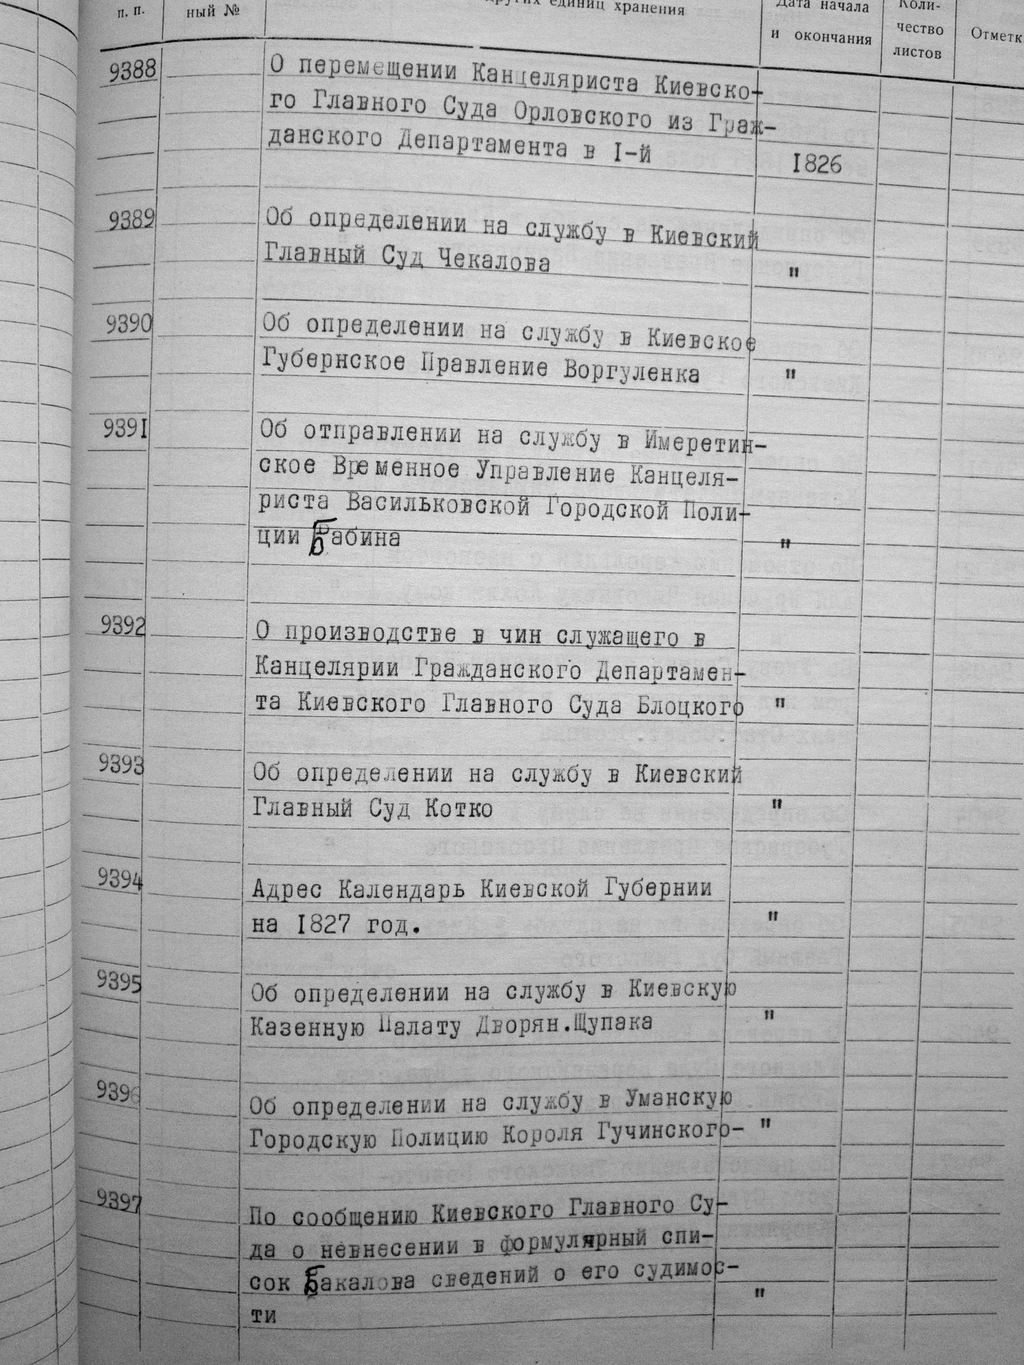 п. п.
ный №
других единиц хранения
Дата начала
и окончания
Коли-
чество
листов
Отметк
9388
О перемещении Канцеляриста Киевско-
го Главного Суда Орловского из Граж-
данского Департамента в I-й
1826
9389
Об определении на службу в Киевский
Главный Суд Чекалова
"
9390
Об определении на службу в Киевское
Губернское Правление Воргуленка
"
9391
Об отправлении на службу в Имеретин-
ское Временное Управление Канцеля-
риста Васильковской Городской Поли-
ции Бабина
"
9392
О производстве в чин служащего в
Канцелярии Гражданского Департамен-
та Киевского Главного Суда Блоцкого
"
9393
Об определении на службу в Киевский
Главный Суд Котко
"
9394
Адрес Календарь Киевской Губернии
на 1827 год.
"
9395
Об определении на службу в Киевскую
Казенную Палату Дворян.Щупака
"
9396
Об определении на службу в Уманскую
Городскую Полицию Короля Гучинского-
"
9397
По сообщению Киевского Главного Су-
да о невнесении в формулярный спи-
сок Бакалова сведений о его судимос-
ти
"